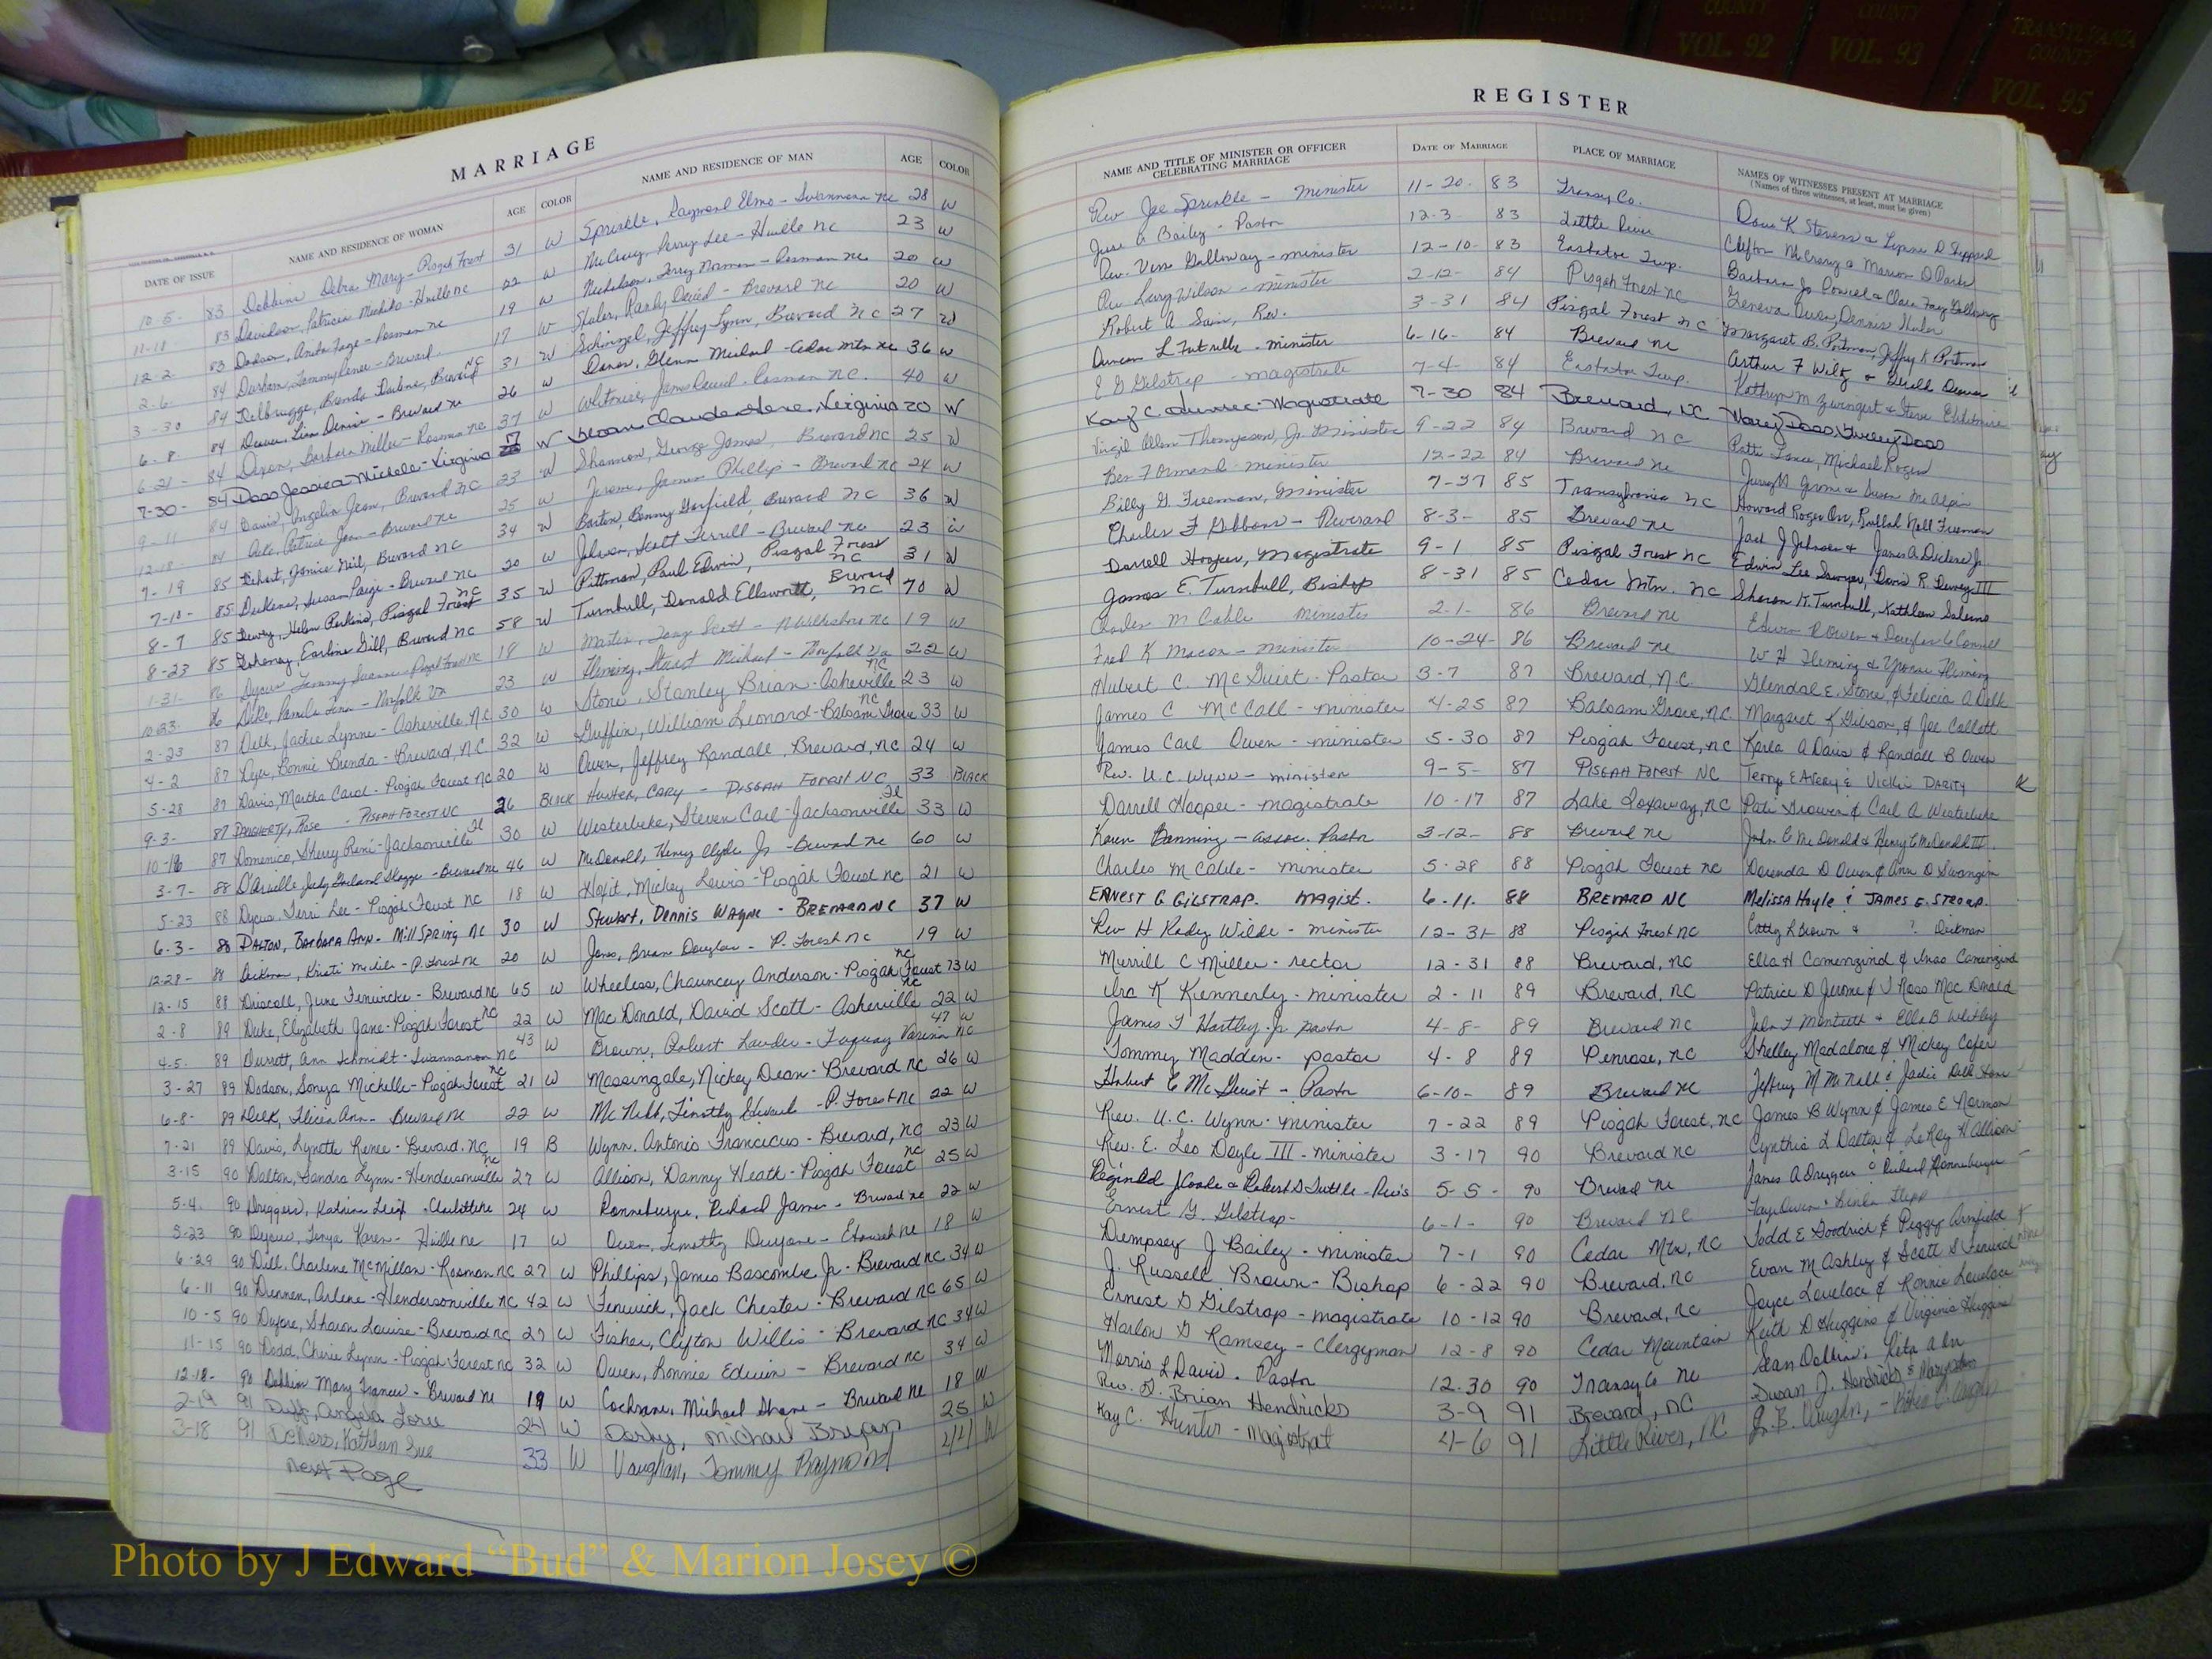 COUNTY VOL. 92
COUNTY VOL. 93
TRANSYLVANIA COUNTY VOL. 95
MARRIAGE
DATE OF ISSUE NAME AND RESIDENCE OF WOMAN AGE COLOR NAME AND RESIDENCE OF MAN AGE COLOR
10-5- 83 Debra Mary - Pisgah Forest 31 W Sprinkle, Raymond Elmo - Swannanoa NC 28 W
11-11 83 Davidson, Patricia - Hville NC 22 W McCrary, Perry Lee - Hville NC 23 W
12-2 83 Dodson, Anita Faye - Rosman NC 19 W Nicholson, Terry Norman - Rosman NC 20 W
2-6- 84 Durham, Tammy - Brevard 17 W Randy David - Brevard NC 20 W
3-30 84 Delbrugge, Ronda Darlene, Brevard NC 31 W Schinzel, Jeffrey Lynn, Brevard NC 27 W
6-8 84 Denver, Lisa Denise - Brevard NC 26 W Glenn Michael - Cedar Mtn NC 36 W
6-21- 84 Dixon, Barbara Miller - Rosman NC 37 W Whitmire, James David - Rosman NC. 40 W
7-30- 84 Doss Jessica Michele - Virginia 17 W Sloan Claude Gene, Virginia 20 W
9-11 84 Davis, Angelia Jean, Brevard NC 23 W Shannon, George James, Brevard NC 25 W
12-18 84 Patrice Joan - Brevard NC 25 W Jerome, James Phillip - Brevard NC 24 W
7-19 85 Dehart, Janice Neil, Brevard NC 34 W Barton, Benny Garfield, Brevard NC 36 W
7-10- 85 Dickens, Susan Paige - Brevard NC 20 W Johnson, Scott Terrell - Brevard NC 23 W
8-7 85 Dewey, Helen Perkins, Pisgah Forest NC 35 W Pittman, Paul Edwin, Pisgah Forest NC 31 W
8-23 85 Doheney, Earline Gill, Brevard NC 58 W Turnbull, Donald Ellsworth, Brevard NC 70 W
1-31- 86 Dycus Tammy Suanne - Pisgah Forest NC 18 W Martin, Tony Scott - N Wilkesboro NC 19 W
10-23- 86 Dike, Pamela - Norfolk Va 23 W Fleming, Stuart Michael - Norfolk Va 22 W
2-23 87 Delk, Jackie Lynne - Asheville, NC 30 W Stone, Stanley Brian - Asheville NC 23 W
4-2 87 Dyer, Bonnie Brenda - Brevard, NC 32 W Griffin, William Leonard - Balsam Grove NC 33 W
5-28 87 Davis, Martha Carol - Pisgah Forest NC 20 W Owen, Jeffrey Randall, Brevard, NC 24 W
9-3- 87 DAUGHERTY, Rose - PISGAH FOREST NC 26 BLACK Hunter, CARY - PISGAH FOREST NC 33 BLACK
10-16 87 Domenico, Sherry Reni - Jacksonville Fl 30 W Westerbeke, Steven Carl - Jacksonville Fl 33 W
3-7- 88 D'Arville Judy Garland Skaggs - Brevard NC 46 W McDonald, Henry Clyde Jr - Brevard NC 60 W
5-23 88 Dycus, Terri Lee - Pisgah Forest NC 18 W Hoxit, Mickey Lewis - Pisgah Forest NC 21 W
6-3- 88 DALTON, BARBARA ANN - MILL SPRING NC 30 W Stewart, Dennis WAYNE - BREVARD NC 37 W
12-28- 88 Dickman, Kristi Michele - P. Forest NC 20 W Jones, Brian Douglas - P. Forest NC 19 W
12-15 88 Driscoll, June Fenwicke - Brevard NC 65 W Wheeless, Chauncey Anderson - Pisgah Forest NC 73 W
2-8 89 Duke, Elizabeth Jane - Pisgah Forest NC 22 W Mac Donald, David Scott - Asheville NC 22 W
4-5- 89 Durrett, Ann Schmidt - Swannanoa NC 43 W Brown, Robert Lauder - Fuquay Varina NC 47 W
3-27 89 Dodson, Sonya Michelle - Pisgah Forest NC 21 W Massingale, Nickey Dean - Brevard NC 26 W
6-8- 89 Delk, Felicia Ann - Brevard NC 22 W McNabb, Timothy - P. Forest NC 22 W
7-21 89 Davis, Lynette Renee - Brevard, NC 19 B Wynn, Antonio Franciscus - Brevard, NC 23 W
3-15 90 Dalton, Sandra Lynn - Hendersonville NC 27 W Allison, Danny Heath - Pisgah Forest NC 25 W
5-4. 90 Driggers, Katrina Leigh - Charlotte NC 24 W Ronneburger, Richard James - Brevard NC 22 W
5-23 90 Dycus, Tonya Karen - Hville NC 17 W Owen, Timothy Dwyane - Etowah NC 18 W
6-29 90 Dill, Charlene McMillan - Rosman NC 27 W Phillips, James Bascombe Jr. - Brevard NC 34 W
6-11 90 Drennen, Arlene - Hendersonville NC 42 W Fenwick, Jack Chester - Brevard NC 65 W
10-5 90 Dufore, Sharon Louise - Brevard NC 27 W Fisher, Clifton Willis - Brevard NC 34 W
11-15 90 Dodd, Cherie Lynn - Pisgah Forest NC 32 W Owen, Ronnie Edwin - Brevard NC 34 W
12-18- 90 Mary Frances - Brevard NC 19 W Cochrane, Michael Shane - Brevard NC 18 W
2-19 91 Duff, Angela Loree 24 W Darby, Michael Bryan 25 W
3-18 91 Kathleen Sue 33 W Vaughan, Tommy Raymond 44 W
Next Page
REGISTER
NAME AND TITLE OF MINISTER OR OFFICER CELEBRATING MARRIAGE DATE OF MARRIAGE PLACE OF MARRIAGE NAMES OF WITNESSES PRESENT AT MARRIAGE (Names of three witnesses, at least, must be given)
Rev Joe Sprinkle - Minister 11-20- 83 Transy Co. K Stevens & Lynne D Sheppard
A Bailey - Pastor 12-3 83 Little River Clifton McCrary & Marion D Parker
Rev. Vern Galloway - minister 12-10- 83 Eastatoe Twp. Barbara Jo Powell & Clara Faye Galloway
Rev Larry Wilson - minister 2-12- 84 Pisgah Forest NC Geneva Owen, Dennis
Robert A Sain, Rev. 3-31 84 Pisgah Forest NC Margaret B. Portman, Jeffry K Portman
Duncan L Futrelle - minister 6-16- 84 Brevard NC Arthur F Wilk &
E G Gilstrap - magistrate 7-4- 84 Eastatoe Twp. Kathryn M Zwingert & Steve Whitmire
Kay C. Hunter - Magistrate 7-30 84 Brevard, NC Doss, Doss
Virgil Allen Thompson, Jr. Minister 9-22 84 Brevard NC Patti Lance, Michael Rogers
Ben F Ormand - minister 12-22 84 Brevard NC Jerome & Susan McAlpin
Billy G. Freeman, Minister 7-27 85 Transylvania NC Howard Roger Orr, Beulah Nell Freeman
Charles F Gibbons - Reverand 8-3- 85 Brevard NC Jack J Johnson & James A Dickens Jr.
Darrell Hooper, Magistrate 9-1 85 Pisgah Forest NC Edwin Lee Sawyer, David R. Dewey III
James E. Turnbull, Bishop 8-31 85 Cedar Mtn. NC Sharon K. Turnbull, Kathleen Salerno
Charles M Cable Minister 2-1- 86 Brevard NC Edwin R Owen & Douglas G Connell
Fred K Macon - minister 10-24- 86 Brevard NC W H Fleming & Yvonne Fleming
Hubert C. McGuirt - Pastor 3-7 87 Brevard, N.C. Glendal E. Stone, & Felicia A Delk
James C McCall - minister 4-25 87 Balsam Grove, NC. Margaret L Gibson, & Joe Collett
James Carl Owen - minister 5-30 87 Pisgah Forest, NC Karla A Davis & Randall B Owen
Rev. U.C. Wynn - minister 9-5- 87 PISGAH Forest NC Terry E Avery & Vickie DARITY
Darrell Hooper - magistrate 10-17 87 Lake Toxaway, NC Pati Brown & Carl A Westerbeke
Karen Denning - assoc. Pastor 3-12- 88 Brevard NC John C McDonald & Henry C McDonald III.
Charles M Cable - Minister 5-28 88 Pisgah Forest NC Dorenda D Owen & Ann O Swangim
ERNEST G GILSTRAP. MAGIST. 6-11. 88 BREVARD NC Melissa Hoyle & JAMES E. STROUP.
Rev H Rodney Wilde - Minister 12-31- 88 Pisgah Forest NC Cathy L Brown & ? Dickman
Merrill C Miller - rector 12-31 88 Brevard, NC Ella H Comenzind & Comenzind
Ira K Kennerly - minister 2-11 89 Brevard, NC Patrice D Jerome & J Ross Mac Donald
James T Hartley Jr Pastor 4-8- 89 Brevard NC John T Monteith & Ella B Whitley
Tommy Madden - pastor 4-8 89 Penrose, NC Shelley Madalone & Mickey Cofer
Hubert C McGuirt - Pastor 6-10- 89 Brevard NC Jeffrey M McNabb & Jackie Delk Stone
Rev. U.C. Wynn - minister 7-22 89 Pisgah Forest, NC James B Wynn & James E Norman
Rev. E. Leo Doyle III - minister 3-17 90 Brevard NC Cynthia L Dalton & LeRoy H Allison
Reginald J Cooke & Robert D Tuttle - Revs 5-5- 90 Brevard NC James A Driggers & Richard Ronneburger
Ernest G. Gilstrap - 6-1- 90 Brevard NC Faye Owen & Linda Stepp
Dempsey J Bailey - minister 7-1 90 Cedar Mtn, NC Todd E Goodrich & Peggy Armfield
J. Russell Brown - Bishop 6-22 90 Brevard, NC Evan M Ashley & Scott S Fenwick
Ernest G Gilstrap - magistrate 10-12 90 Brevard, NC Joyce Lovelace & Ronnie Lovelace
Harlon D Ramsey - Clergyman 12-8 90 Cedar Mountain Keith D Huggins & Virginia Huggins
Morris L Davis. Pastor 12.30 90 Transy Co NC Sean
Rev. D. Brian Hendricks 3-9 91 Brevard, NC Susan J. Hendricks &
Kay C. Hunter - Magistrat 4-6 91 Little River, NC
Photo by J Edward "Bud" & Marion Josey ©